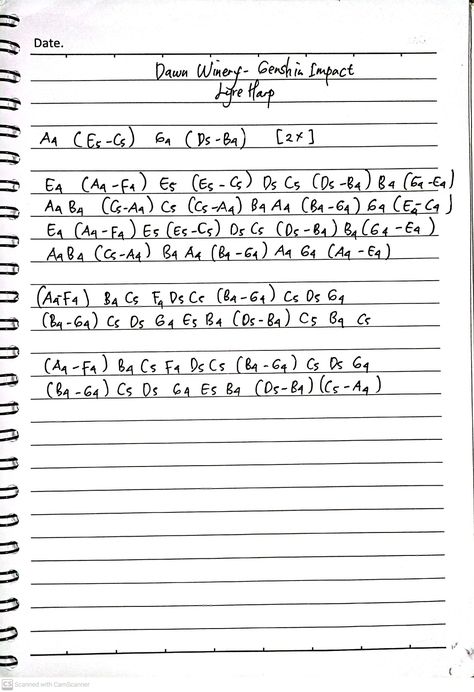 Date.
Dawn Winery - Genshin Impact
Lyre Harp
A4 (E5-C5) G4 (D5-B4) [2x]
E4 (A4-F4) E5 (E5-C5) D5 C5 (D5-B4) B4 (G4-E4)
A4 B4 (C5-A4) C5 (C5-A4) B4 A4 (B4-G4) G4 (E4-C4)
E4 (A4-F4) E5 (E5-C5) D5 C5 (D5-B4) B4 (G4-E4)
A4 B4 (C5-A4) B4 A4 (B4-G4) A4 G4 (A4-E4)
(A4-F4) B4 C5 F4 D5 C5 (B4-G4) C5 D5 G4
(B4-G4) C5 D5 G4 E5 B4 (D5-B4) C5 B4 C5
(A4-F4) B4 C5 F4 D5 C5 (B4-G4) C5 D5 G4
(B4-G4) C5 D5 G4 E5 B4 (D5-B4) (C5-A4)
CS Scanned with CamScanner